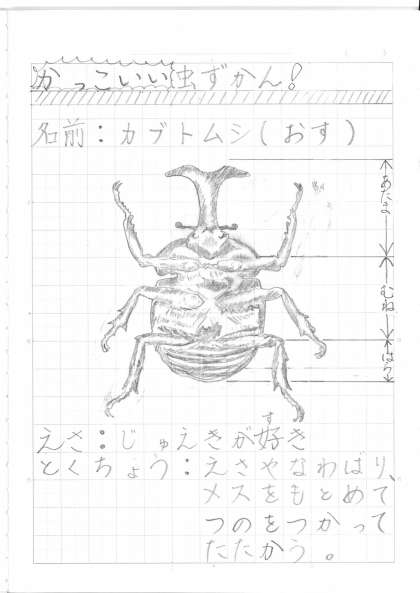 かっこいい虫ずかん!
名前:カブトムシ(おす)
あたま
むね
はら
す
えさ:じゅえきが好き
とくちょう:えさやなわばり、
メスをもとめて
つのをつかって
たたかう。